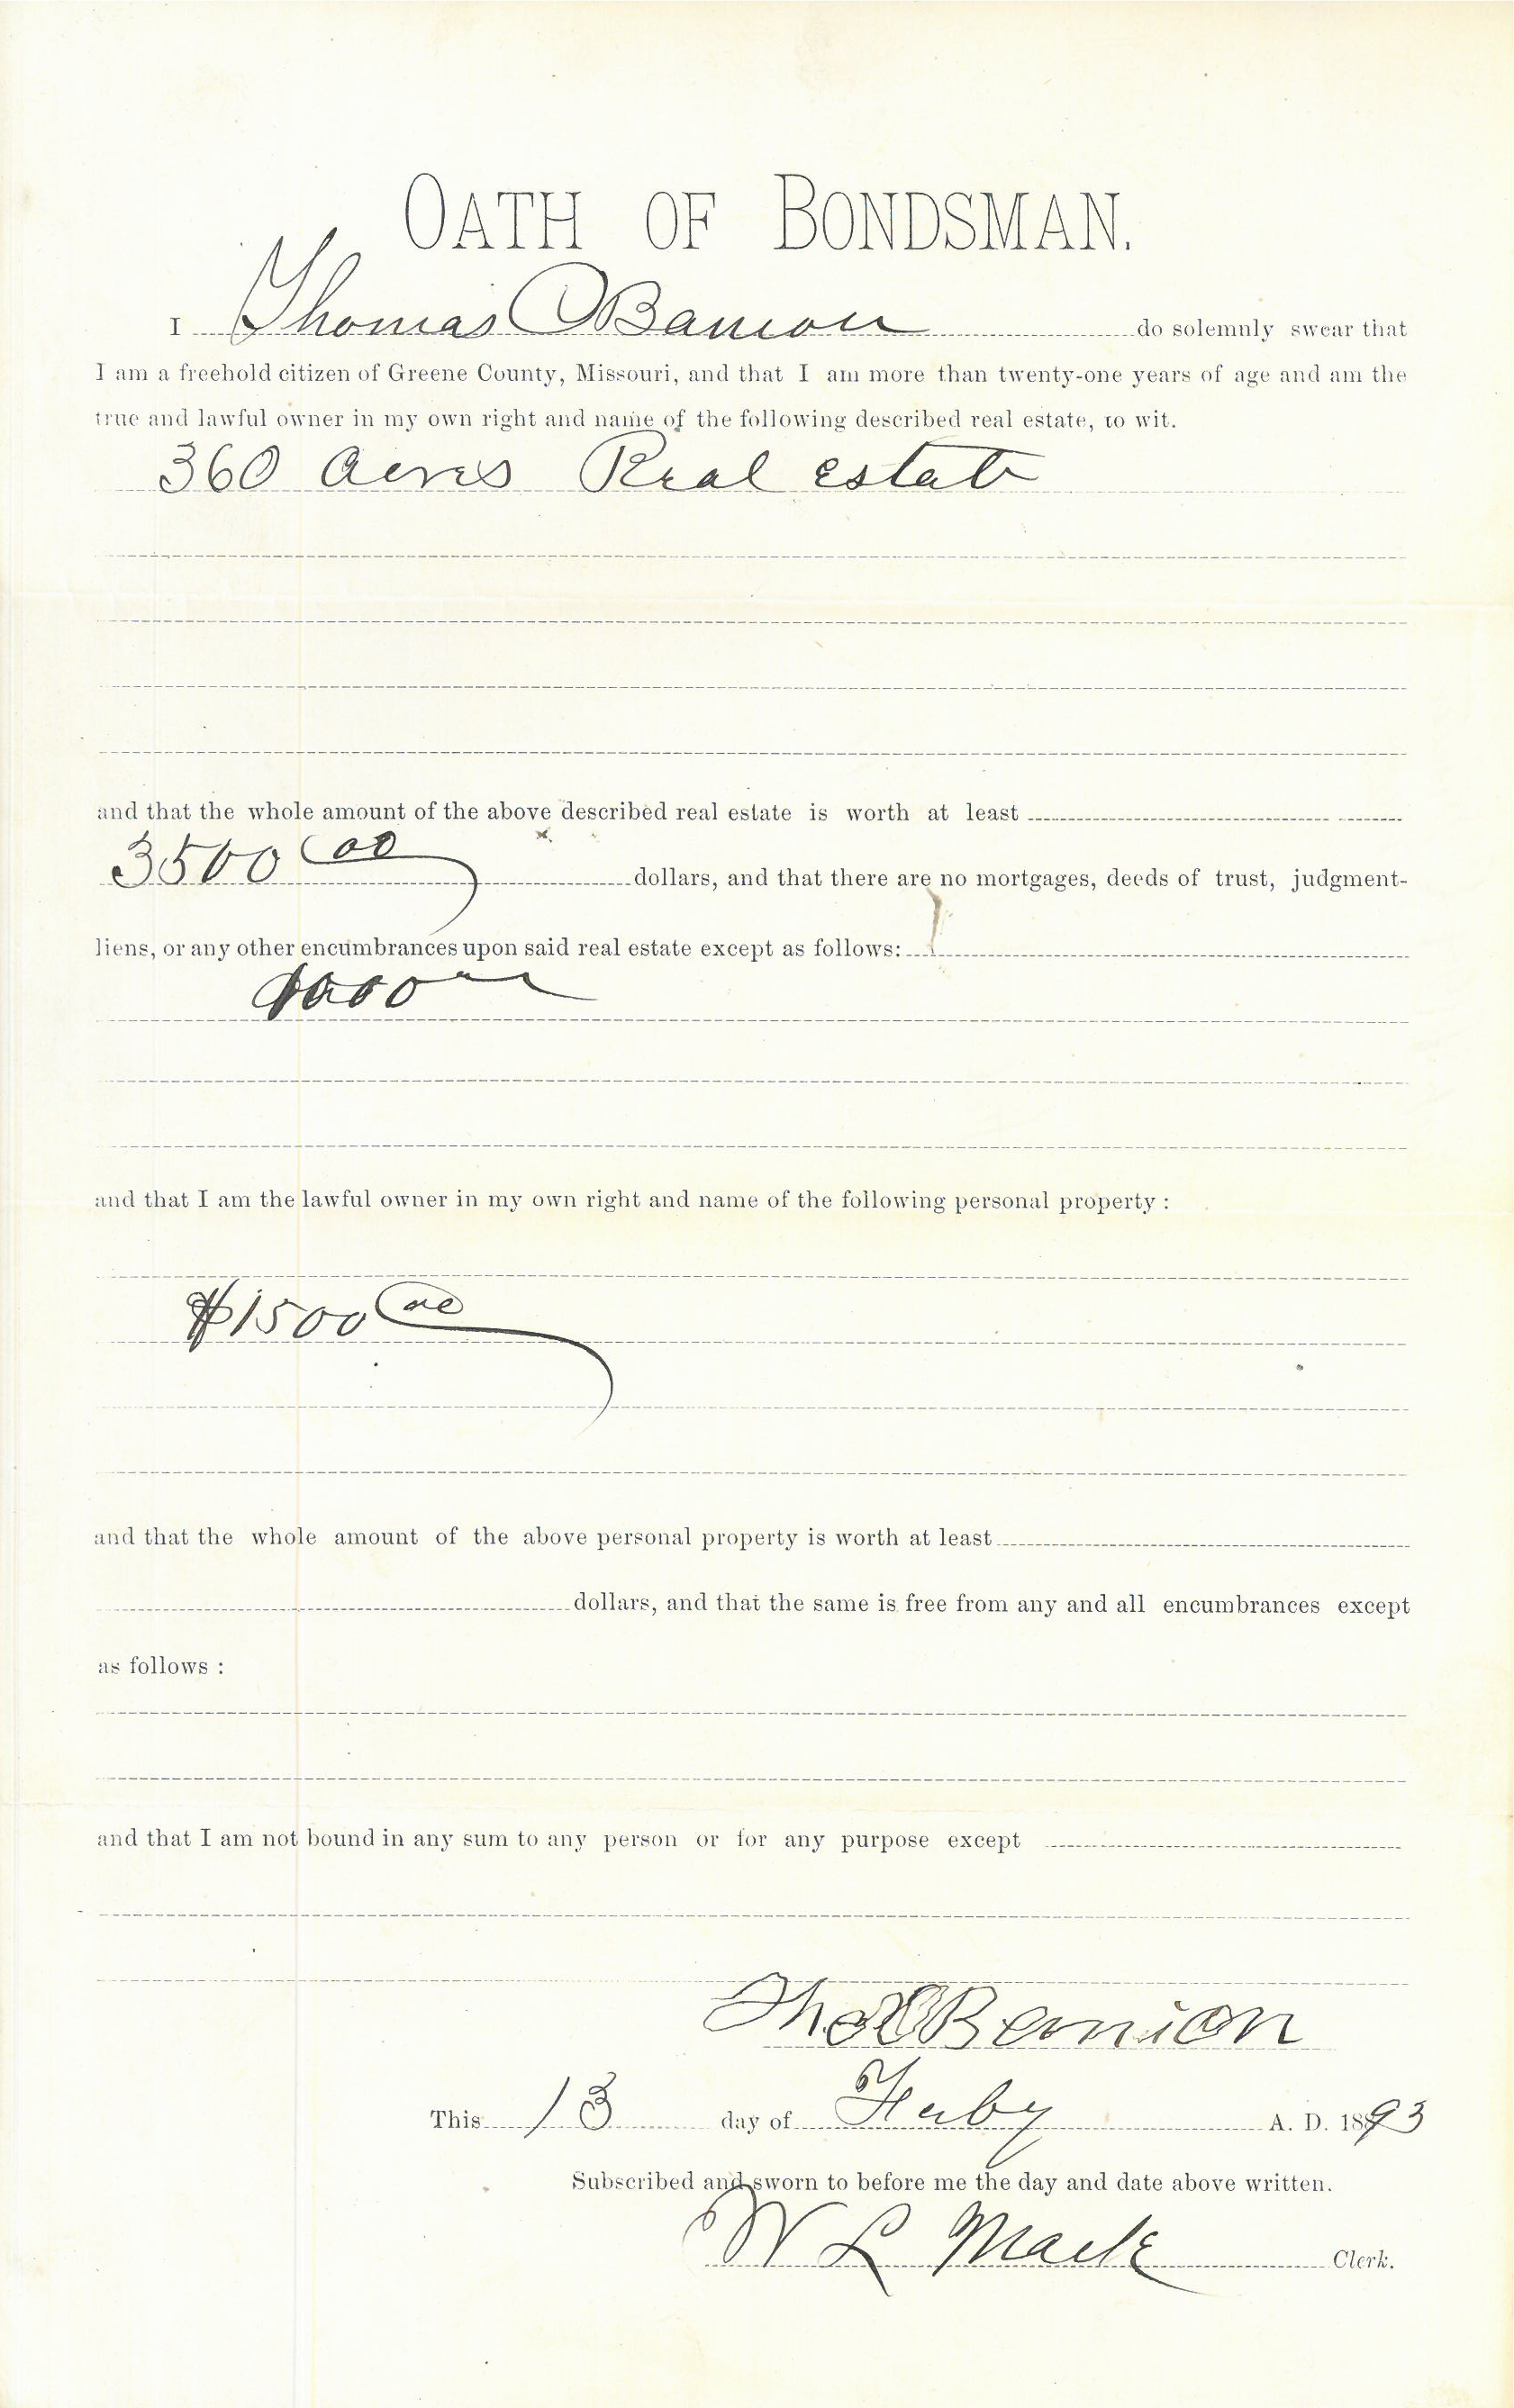 OATH OF BONDSMAN.
I Thomas OBanion do solemnly swear that
I am a freehold citizen of Greene County, Missouri, and that I am more than twenty-one years of age and am the
true and lawful owner in my own right and name of the following described real estate, to wit.
360 acres Real estate
and that the whole amount of the above described real estate is worth at least
3500 00 dollars, and that there are no mortgages, deeds of trust, judgment-
liens, or any other encumbrances upon said real estate except as follows:
and that I am the lawful owner in my own right and name of the following personal property :
$1500 00
and that the whole amount of the above personal property is worth at least
dollars, and that the same is free from any and all encumbrances except
as follows :
and that I am not bound in any sum to any person or for any purpose except
Thos OBannion
This 13 day of Feby A. D. 1893
Subscribed and sworn to before me the day and date above written.
W L Mack Clerk.